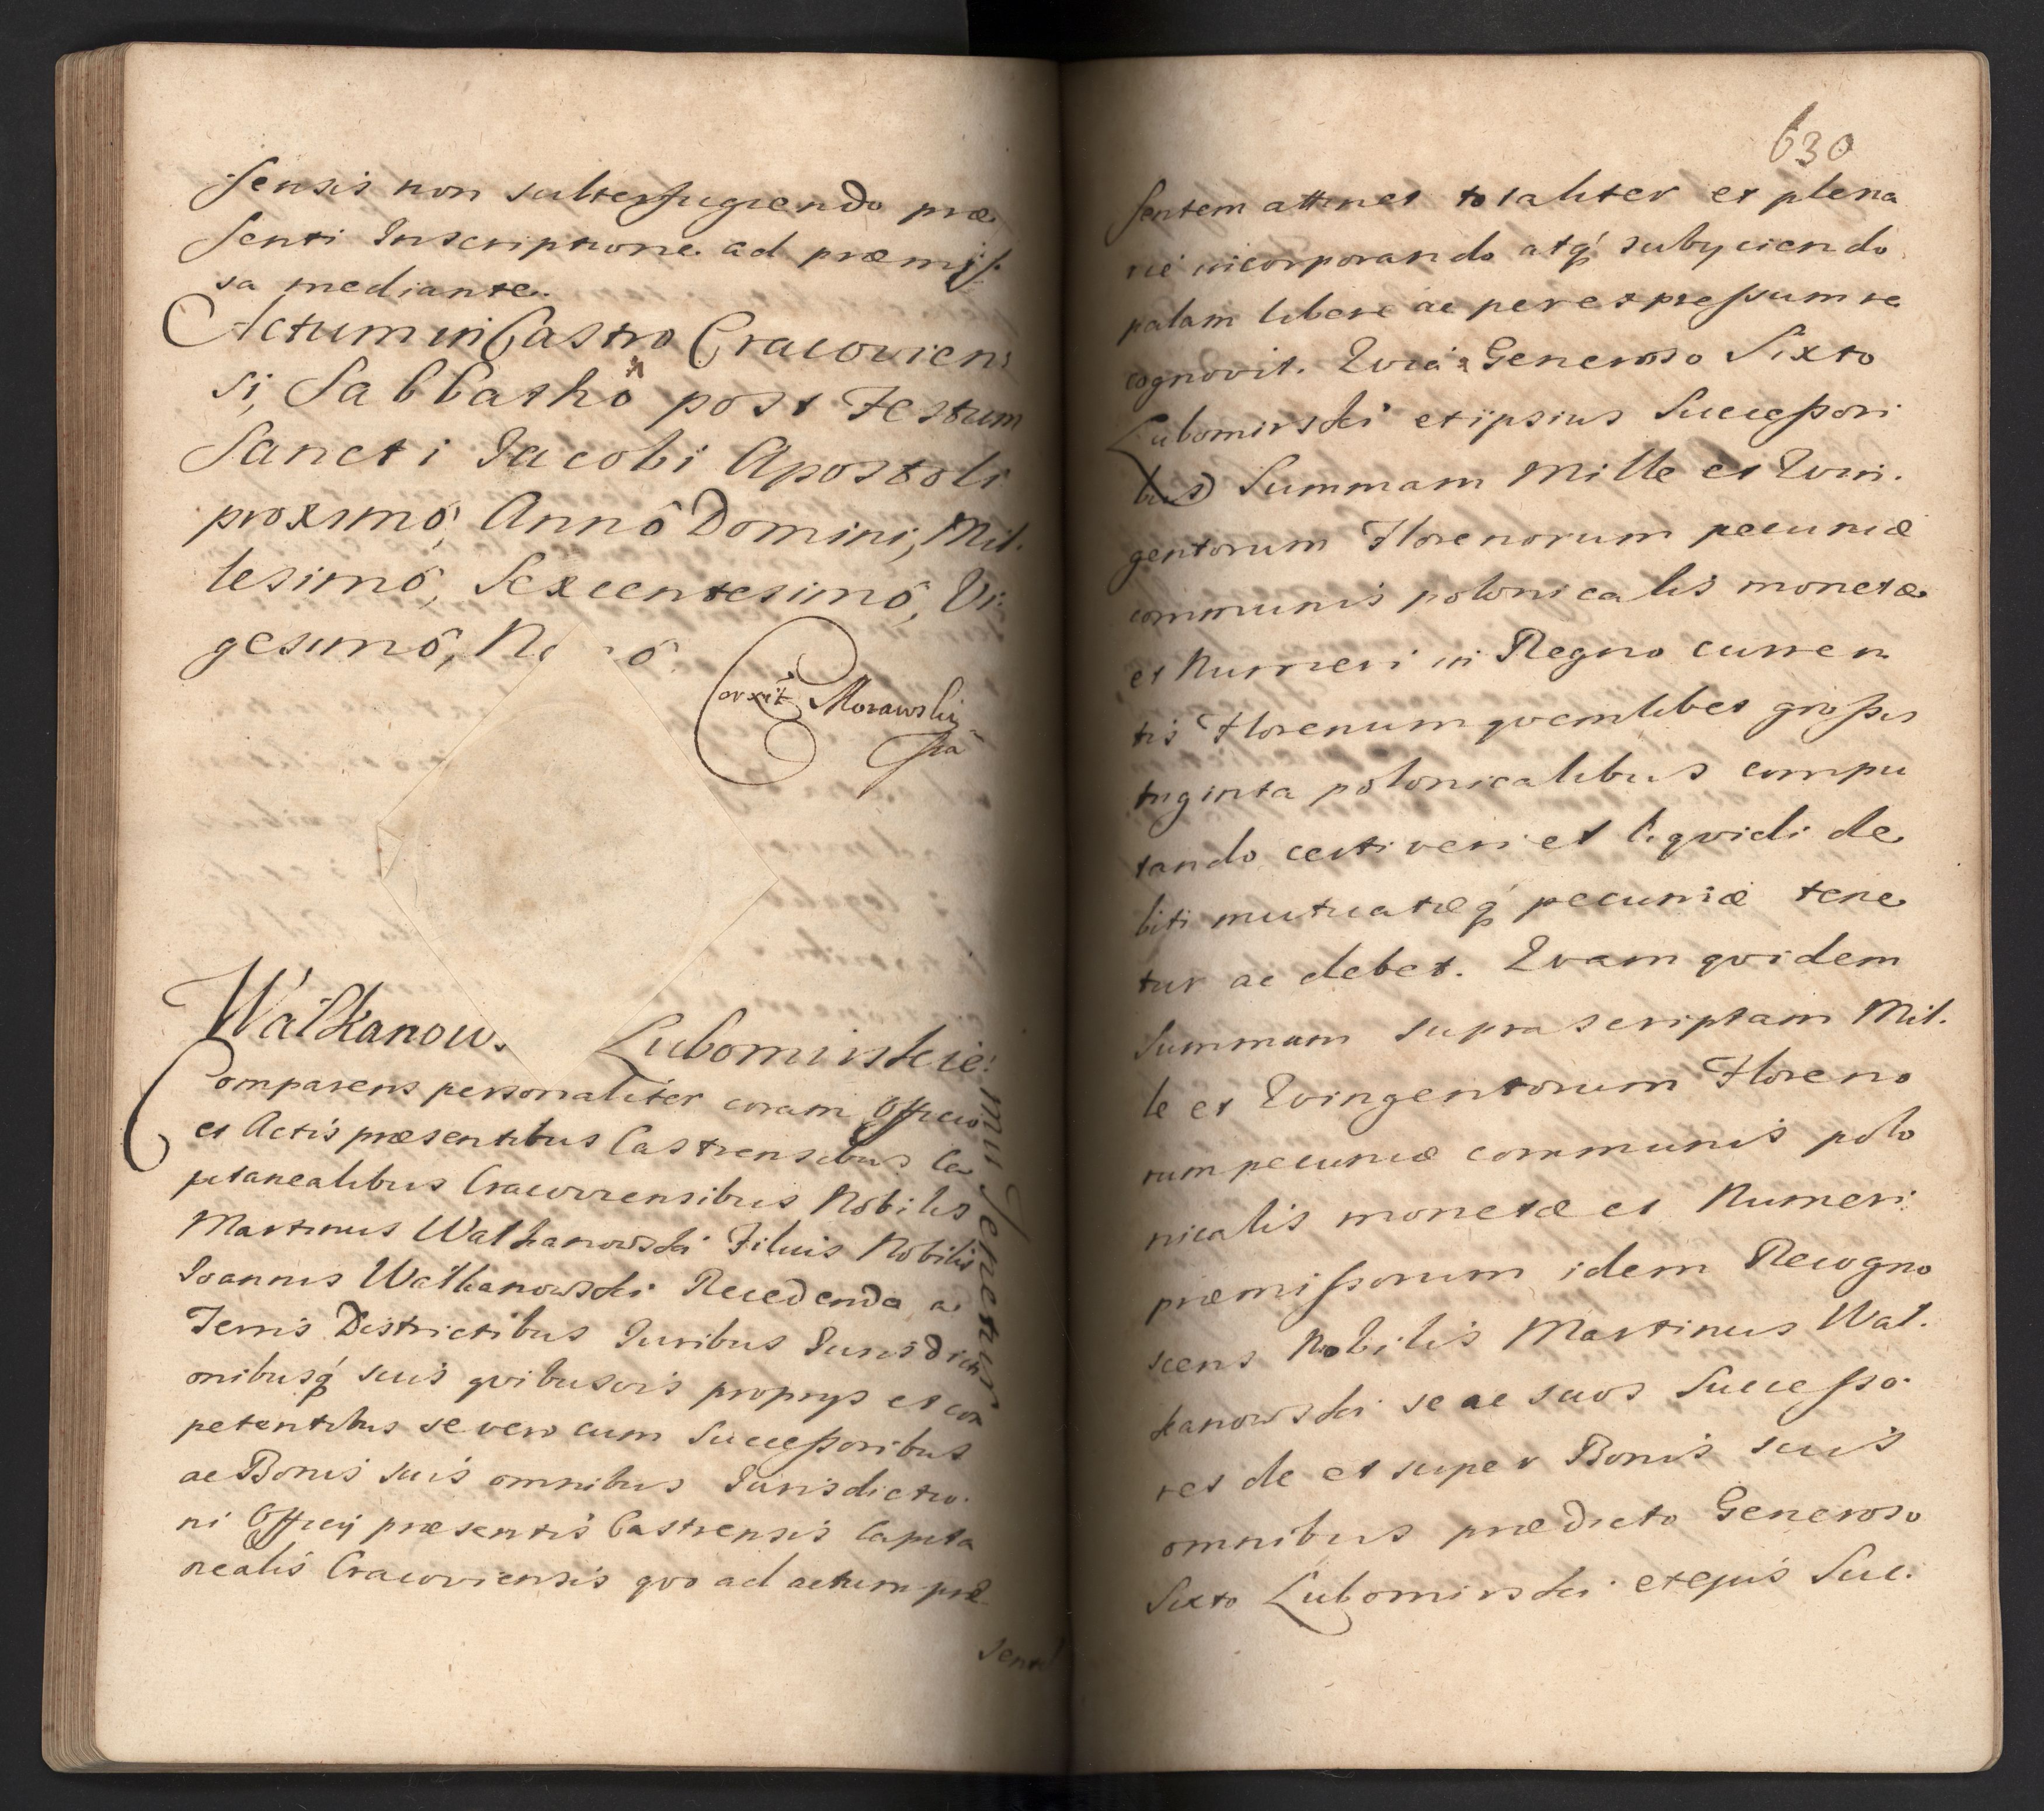 sensis non subterfugiendo præ
senti Inscriptione ad præmis
sa mediante.
Actum in Castro Cracovien
si, Sabbathô post Festum
Sancti Jacobi Apostoli
proximô, Annô Domini, Mil.
lesimô, Sexcentesimô, Vi
gesimô,
Corxit Morawski
Walkanow. Lubomirskie:
mu Tenetur
Comparens personaliter coram Officio
et Actis præsentibus Castrensibus Ca
pitanealibus Cracoviensibus Nobilis
Martinus Walkanowski Filius Nobilis
Joannis Walkanowski Recedendo a
Terris Districtibus Juribus Jurisdicti
onibusq suis qvibusvis proprys et com
petentibus se vero cum Successoribus
ac Bonis suis omnibus Jurisdictio.
ni Officij præsentis Castrensis Capita
nealis Cracoviensis qvo ad actum præ
sent
630
sentem attinet totaliter et plena
rie incorporando atq subyciendo
palam libere ac per expressum re
cognovit. Qvia Generoso Sixto
Lubomirski et ipsius Successori
bus Summam Mille et Qvin.
gentorum Florenorum pecuniæ
communis polonicalis monetæ
et Numeri in Regno curren
tis Florenum qvemlibet grossis
triginta polonicalibus compu
tando certi veri et liqvidi de
biti mutuatæq pecuniæ tene
tur ac debet. Qvam qvidem
Summam suprascriptam Mil.
le et Qvingentorum Floreno
rum pecuniæ communis polo
nicalis monetæ et Numeri
præmissorum idem Recogno
scens Nobilis Martinus Wal.
kanowski se ac suos Successo
res de et super Bonis suis
omnibus prædicto Generoso
Sixto Lubomirski et ejus Suc.